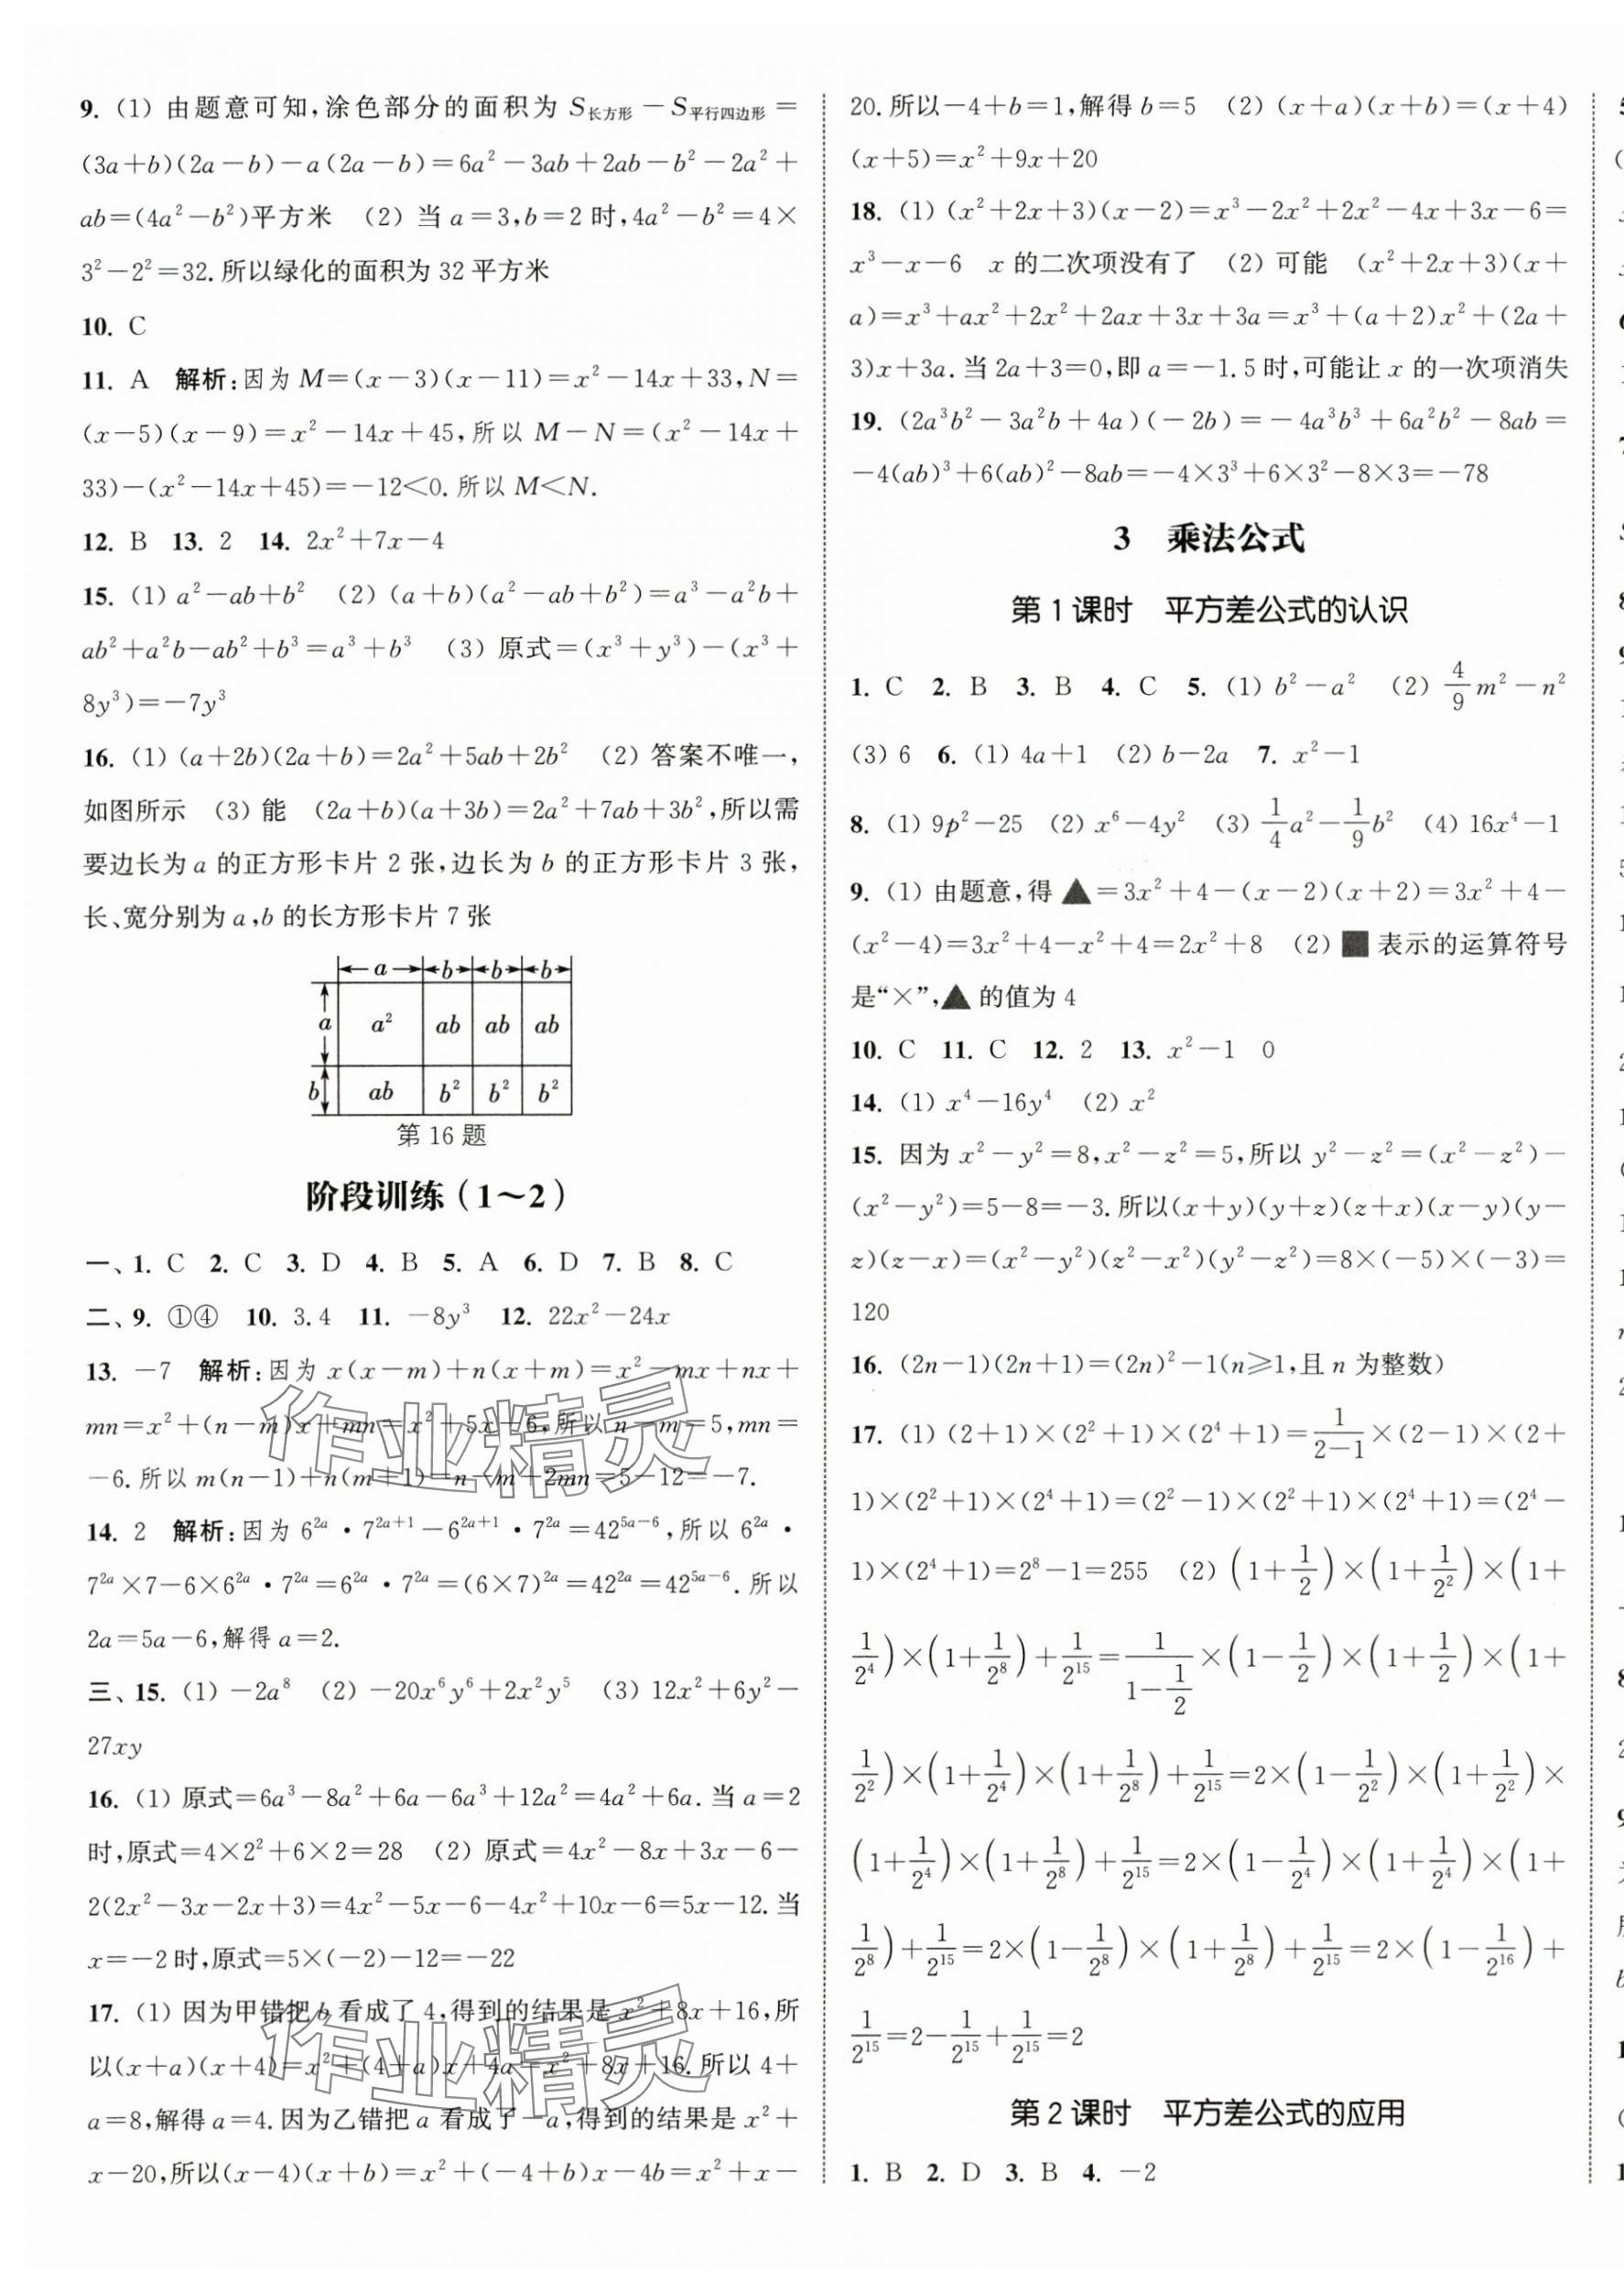 9. (1) 由题意可知,涂色部分的面积为 S长方形－S平行四边形＝
(3a＋b)(2a－b)－a(2a－b)＝6a²－3ab＋2ab－b²－2a²＋
ab＝(4a²－b²)平方米 (2) 当 a＝3,b＝2 时,4a²－b²＝4×
3²－2²＝32.所以绿化的面积为 32 平方米
10. C
11. A 解析:因为 M＝(x－3)(x－11)＝x²－14x＋33,N＝
(x－5)(x－9)＝x²－14x＋45,所以 M－N＝(x²－14x＋
33)－(x²－14x＋45)＝－12<0.所以 M<N.
12. B 13. 2 14. 2x²＋7x－4
15. (1) a²－ab＋b² (2) (a＋b)(a²－ab＋b²)＝a³－a²b＋
ab²＋a²b－ab²＋b³＝a³＋b³ (3) 原式＝(x³＋y³)－(x³＋
8y³)＝－7y³
16. (1) (a＋2b)(2a＋b)＝2a²＋5ab＋2b² (2) 答案不唯一,
如图所示 (3) 能 (2a＋b)(a＋3b)＝2a²＋7ab＋3b²,所以需
要边长为 a 的正方形卡片 2 张,边长为 b 的正方形卡片 3 张,
长、宽分别为 a,b 的长方形卡片 7 张
a b b b
a a² ab ab ab
b ab b² b² b²
第 16 题
阶段训练(1～2)
一、1. C 2. C 3. D 4. B 5. A 6. D 7. B 8. C
二、9. ①④ 10. 3.4 11. －8y³ 12. 22x²－24x
13. －7 解析:因为 x(x－m)＋n(x＋m)＝x²－mx＋nx＋
mn＝x²＋(n－m)x＋mn＝x²＋5x－6,所以 n－m＝5,mn＝
－6.所以 m(n－1)＋n(m＋1)＝n－m＋2mn＝5－12＝－7.
14. 2 解析:因为 6²ᵃ·7²ᵃ⁺¹－6²ᵃ⁺¹·7²ᵃ＝42⁵ᵃ⁻⁶,所以 6²ᵃ·
7²ᵃ×7－6×6²ᵃ·7²ᵃ＝6²ᵃ·7²ᵃ＝(6×7)²ᵃ＝42²ᵃ＝42⁵ᵃ⁻⁶.所以
2a＝5a－6,解得 a＝2.
三、15. (1) －2a⁸ (2) －20x⁶y⁶＋2x²y⁵ (3) 12x²＋6y²－
27xy
16. (1) 原式＝6a³－8a²＋6a－6a³＋12a²＝4a²＋6a.当 a＝2
时,原式＝4×2²＋6×2＝28 (2) 原式＝4x²－8x＋3x－6－
2(2x²－3x－2x＋3)＝4x²－5x－6－4x²＋10x－6＝5x－12.当
x＝－2时,原式＝5×(－2)－12＝－22
17. (1) 因为甲错把 b 看成了 4,得到的结果是 x²＋8x＋16,所
以(x＋a)(x＋4)＝x²＋(4＋a)x＋4a＝x²＋8x＋16.所以 4＋
a＝8,解得 a＝4.因为乙错把 a 看成了－a,得到的结果是 x²＋
x－20,所以(x－4)(x＋b)＝x²＋(－4＋b)x－4b＝x²＋x－
20.所以－4＋b＝1,解得 b＝5 (2) (x＋a)(x＋b)＝(x＋4)
(x＋5)＝x²＋9x＋20
18. (1) (x²＋2x＋3)(x－2)＝x³－2x²＋2x²－4x＋3x－6＝
x³－x－6 x 的二次项没有了 (2) 可能 (x²＋2x＋3)(x＋
a)＝x³＋ax²＋2x²＋2ax＋3x＋3a＝x³＋(a＋2)x²＋(2a＋
3)x＋3a.当 2a＋3＝0,即 a＝－1.5时,可能让 x 的一次项消失
19. (2a³b²－3a²b＋4a)(－2b)＝－4a³b³＋6a²b²－8ab＝
－4(ab)³＋6(ab)²－8ab＝－4×3³＋6×3²－8×3＝－78
3 乘法公式
第 1 课时 平方差公式的认识
1. C 2. B 3. B 4. C 5. (1) b²－a² (2) 4/9 m²－n²
(3) 6 6. (1) 4a＋1 (2) b－2a 7. x²－1
8. (1) 9p²－25 (2) x⁶－4y² (3) 1/4 a²－1/9 b² (4) 16x⁴－1
9. (1) 由题意,得 ▲＝3x²＋4－(x－2)(x＋2)＝3x²＋4－
(x²－4)＝3x²＋4－x²＋4＝2x²＋8 (2) ■ 表示的运算符号
是“×”,▲ 的值为 4
10. C 11. C 12. 2 13. x²－1 0
14. (1) x⁴－16y⁴ (2) x²
15. 因为 x²－y²＝8,x²－z²＝5,所以 y²－z²＝(x²－z²)－
(x²－y²)＝5－8＝－3.所以(x＋y)(y＋z)(z＋x)(x－y)(y－
z)(z－x)＝(x²－y²)(z²－x²)(y²－z²)＝8×(－5)×(－3)＝
120
16. (2n－1)(2n＋1)＝(2n)²－1(n≥1,且 n 为整数)
17. (1) (2＋1)×(2²＋1)×(2⁴＋1)＝1/(2－1)×(2－1)×(2＋
1)×(2²＋1)×(2⁴＋1)＝(2²－1)×(2²＋1)×(2⁴＋1)＝(2⁴－
1)×(2⁴＋1)＝2⁸－1＝255 (2) (1＋1/2)×(1＋1/2²)×(1＋
1/2⁴)×(1＋1/2⁸)＋1/2¹⁵＝1/(1－1/2)×(1－1/2)×(1＋1/2)×(1＋
1/2²)×(1＋1/2⁴)×(1＋1/2⁸)＋1/2¹⁵＝2×(1－1/2²)×(1＋1/2²)×
(1＋1/2⁴)×(1＋1/2⁸)＋1/2¹⁵＝2×(1－1/2⁴)×(1＋1/2⁴)×(1＋
1/2⁸)＋1/2¹⁵＝2×(1－1/2⁸)×(1＋1/2⁸)＋1/2¹⁵＝2×(1－1/2¹⁶)＋
1/2¹⁵＝2－1/2¹⁵＋1/2¹⁵＝2
第 2 课时 平方差公式的应用
1. B 2. D 3. B 4. －2
作业精灵
作业精灵